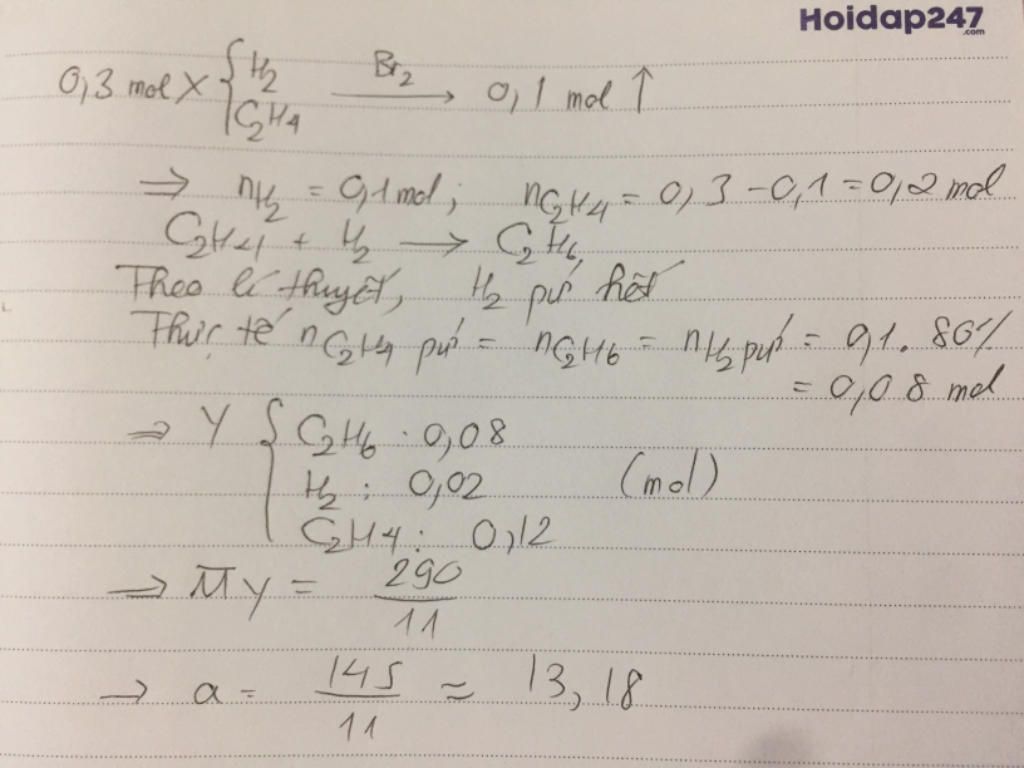 Hoidap247
.com
0,3 mol X { H₂ C₂H₄ —Br₂→ 0,1 mol ↑
⇒ nH₂ = 0,1 mol; nC₂H₄ = 0,3 - 0,1 = 0,2 mol
C₂H₄ + H₂ → C₂H₆
Theo lí thuyết, H₂ pứ hết
Thực tế nC₂H₄ pứ = nC₂H₆ = nH₂ pứ = 0,1. 80%
= 0,08 mol
⇒ Y { C₂H₆ : 0,08
H₂ : 0,02 (mol)
C₂H₄ : 0,12
⇒ M̅Y = 290/11
→ a = 145/11 ≈ 13,18